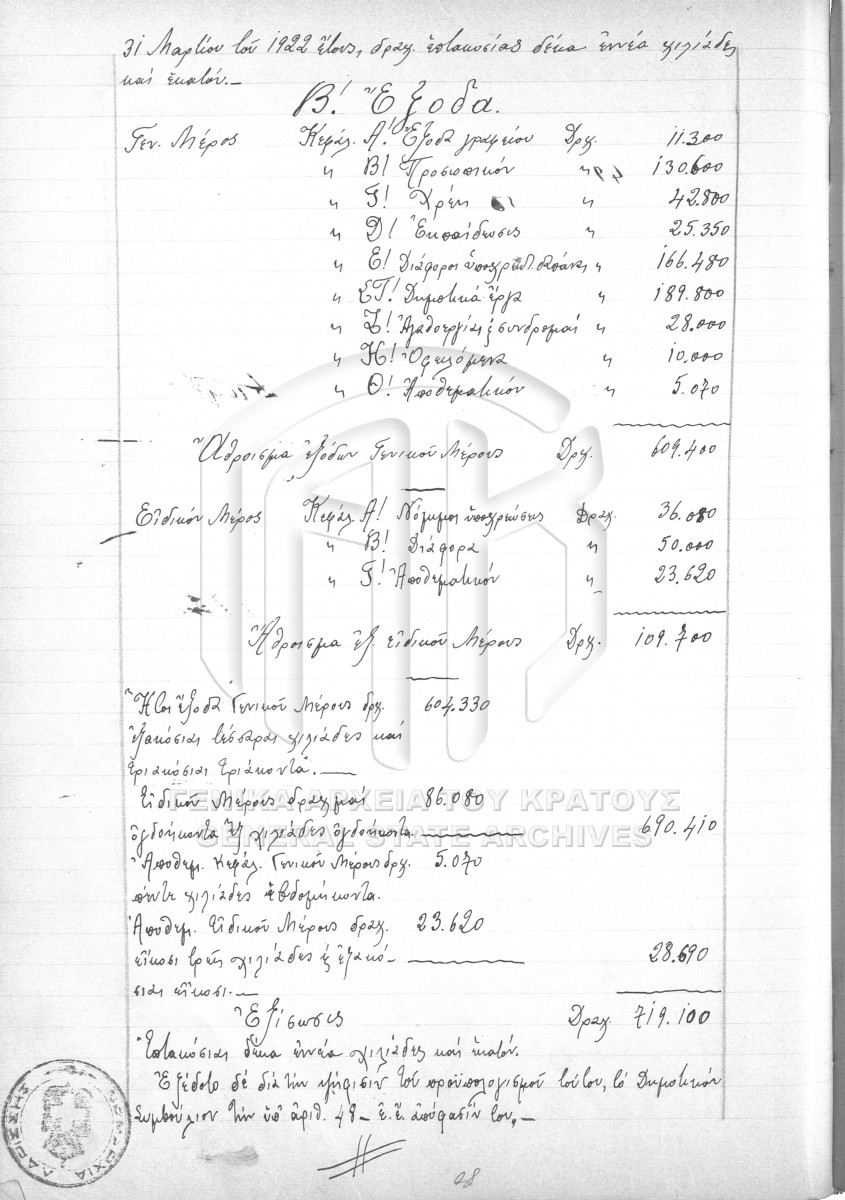 31 Μαρτίου τοῦ 1922 ἔτους, δραχ. ἑπτακοσίας δέκα ἐννέα χιλιάδες
καὶ ἑκατόν.—
Β! Ἔξοδα.
Γεν. Μέρος Κεφάλ. Α! Ἔξοδα γραφείου Δρχ. 11.300
" Β! Προσωπικόν " 130.600
" Γ! Χρέη " 42.800
" Δ! Ἐκπαίδευσις " 25.350
" Ε! Διάφοροι ὑποχρεωτ. δαπάναι " 166.480
" ΣΤ! Δημοτικά ἔργα " 189.800
" Ζ! Ἀγαθοεργίαι & συνδρομαί " 28.000
" Η! Ὀφειλόμενα " 10.000
" Θ! Ἀποθεματικόν " 5.070
Ἄθροισμα ἐξόδων Γενικοῦ Μέρους Δρχ. 609.400
Εἰδικόν Μέρος Κεφάλ. Α! Νόμιμοι ὑποχρεώσεις Δραχ. 36.080
" Β! Διάφορα " 50.000
" Γ! Ἀποθεματικόν " 23.620
Ἄθροισμα ἐξ. εἰδικοῦ Μέρους Δρχ. 109.700
Ἤτοι ἔξοδα Γενικοῦ Μέρους δρχ. 604.330
ἑξακόσιαι τέσσαραι χιλιάδες καί
τριακόσιαι τριάκοντα.—
Εἰδικοῦ Μέρους δραχμαί 86.080
ὀγδοήκοντα ἕξ χιλιάδες ὀγδοήκοντα 690.410
Ἀποθεμ. Κεφάλ. Γενικοῦ Μέρους δρχ. 5.070
πέντε χιλιάδες ἑβδομήκοντα.
Ἀποθεμ. Εἰδικοῦ Μέρους δραχ. 23.620
εἴκοσι τρεῖς χιλιάδες & ἑξακό- 28.690
σιαι εἴκοσι.—
Ἐξίσωσις Δραχ. 719.100
Ἑπτακόσιαι δέκα ἐννέα χιλιάδες καί ἑκατόν.
Ἐξέδοτο δέ διά τήν ψήφισιν τοῦ προϋπολογισμοῦ τούτου, τό Δημοτικόν
Συμβούλιον τήν ὑπ' ἀριθ. 48 – ἐ. ἔ. ἀπόφασίν του,—
28
ΓΕΝΙΚΑ ΑΡΧΕΙΑ ΤΟΥ ΚΡΑΤΟΥΣ
GENERAL STATE ARCHIVES
ΔΗΜΑΡΧΙΑ ΛΑΡΙΣΣΗΣ